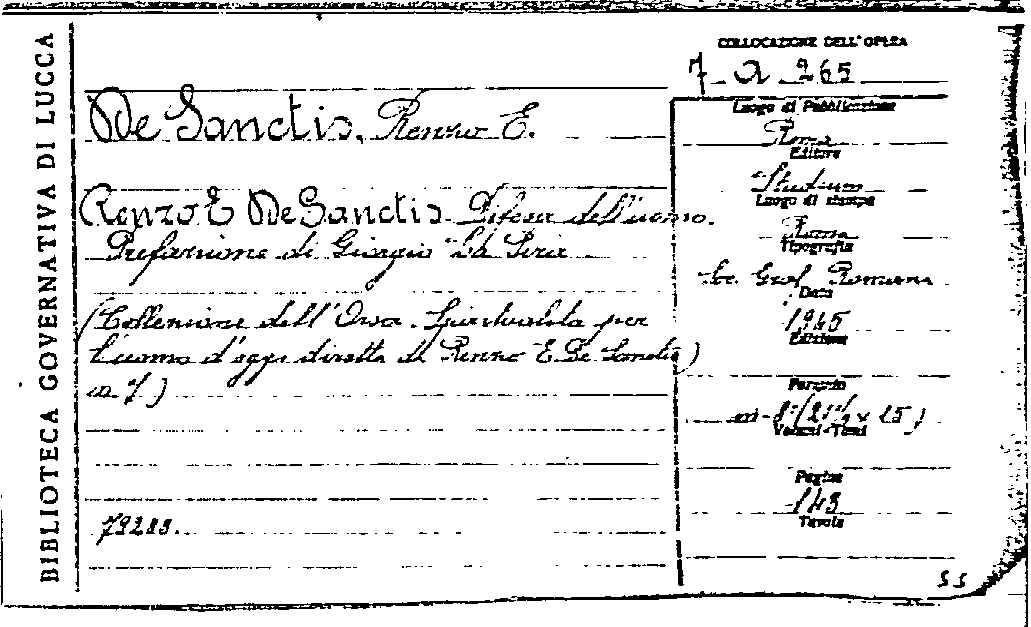 BIBLIOTECA GOVERNATIVA DI LUCCA
COLLOCAZIONE DELL'OPERA
7 A 265
De Sanctis, Renzo E.
Renzo E De Sanctis Difesa dell'uomo.
Prefazione di Giorgio La Piria
(Collezione dell'Ora. Spiritualità per
l'uomo d'oggi diretta da Renzo E. De Sanctis)
n. 7)
79283.
Luogo di Pubblicazione
Roma
Editore
Studium
Luogo di stampa
Roma
Tipografia
Graf. Romana
Data
1945
Edizione
Formato
in-8° (21 ½ x 15)
Volumi-Tomi
Pagine
143
Tavole
SS